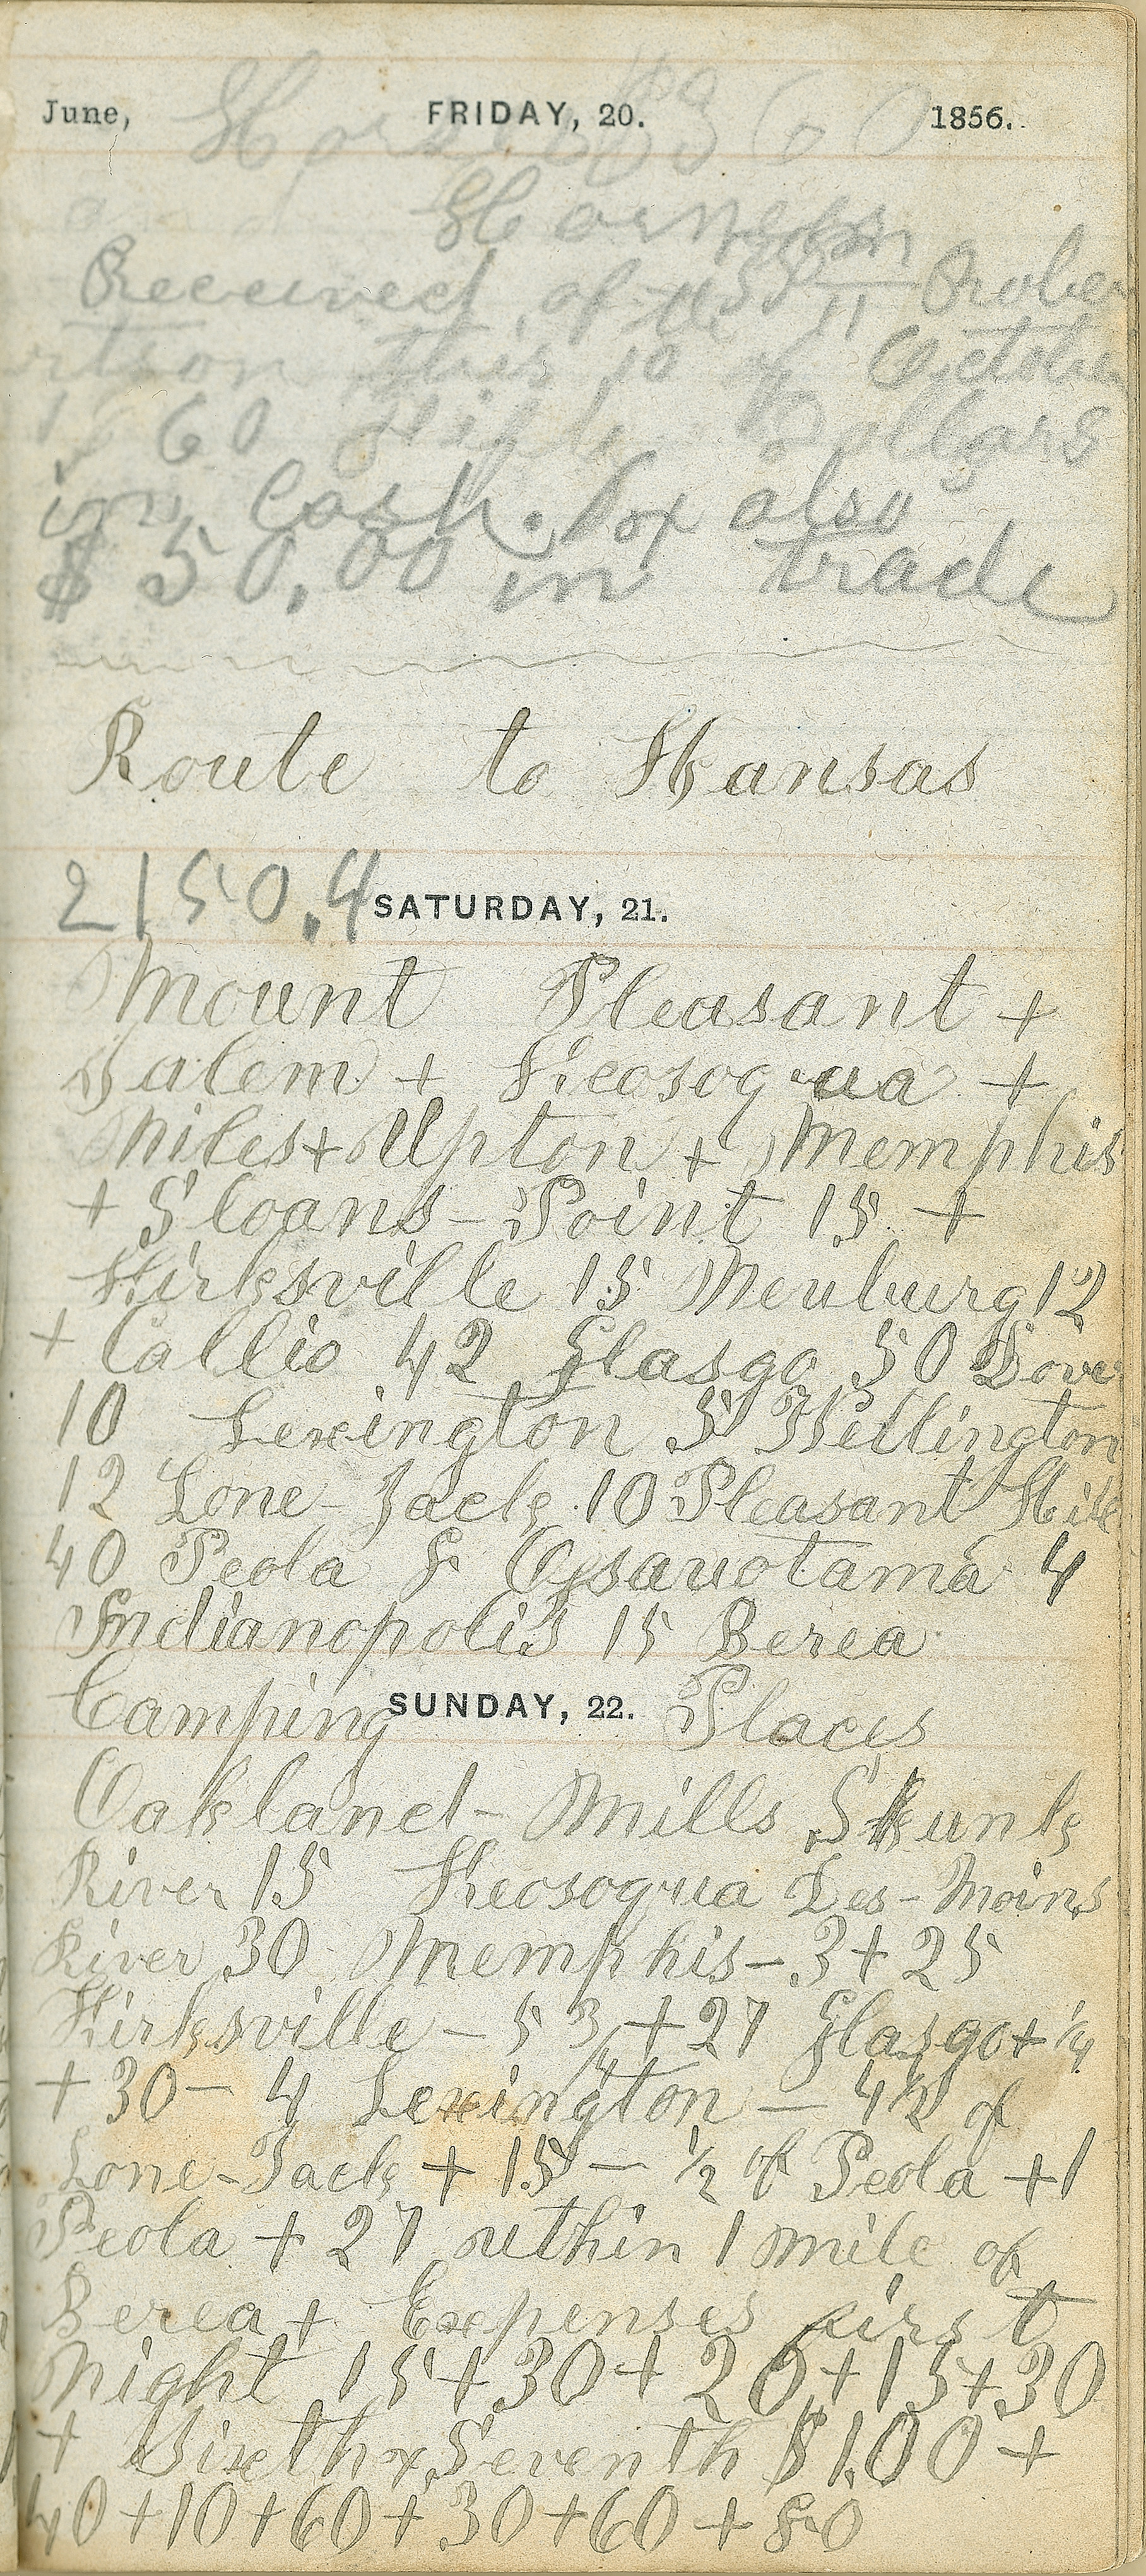 June, FRIDAY, 20. 1856.
Harness
Received of
this 10 of October
1860 Fifty Dollars
in Cash. For also
$50,00 in trade
Route to Kansas
2150,4 SATURDAY, 21.
Mount Pleasant +
Salem + Keosoqua +
Miles + Upton + Memphis
+ Sloans-Point 15 +
Kirksville 15 Neuburg 12
+ Callio 42 Glasgo 50 Dover
10 Lexington 5 Wellington
12 Lone-Jack 10 Pleasant Hill
40 Peola 8 Ossauotama 4
Indianopolis 15 Berea
SUNDAY, 22.
Camping Places
Oakland-Mills Skunk
River 15 Keosoqua Des-Moins
River 30 Memphis-3+25
Kirksville-5 3/4+27 Glasgo+1/4
+30-4 Lexington - of
Lone-Jack + 15 - 1/2 of Peola +1
Peola + 27 within 1 mile of
Berea + Expenses first
Night 15+30+20+15+30
+ Sixth & Seventh $1,00+
40+10+60+30+60+80